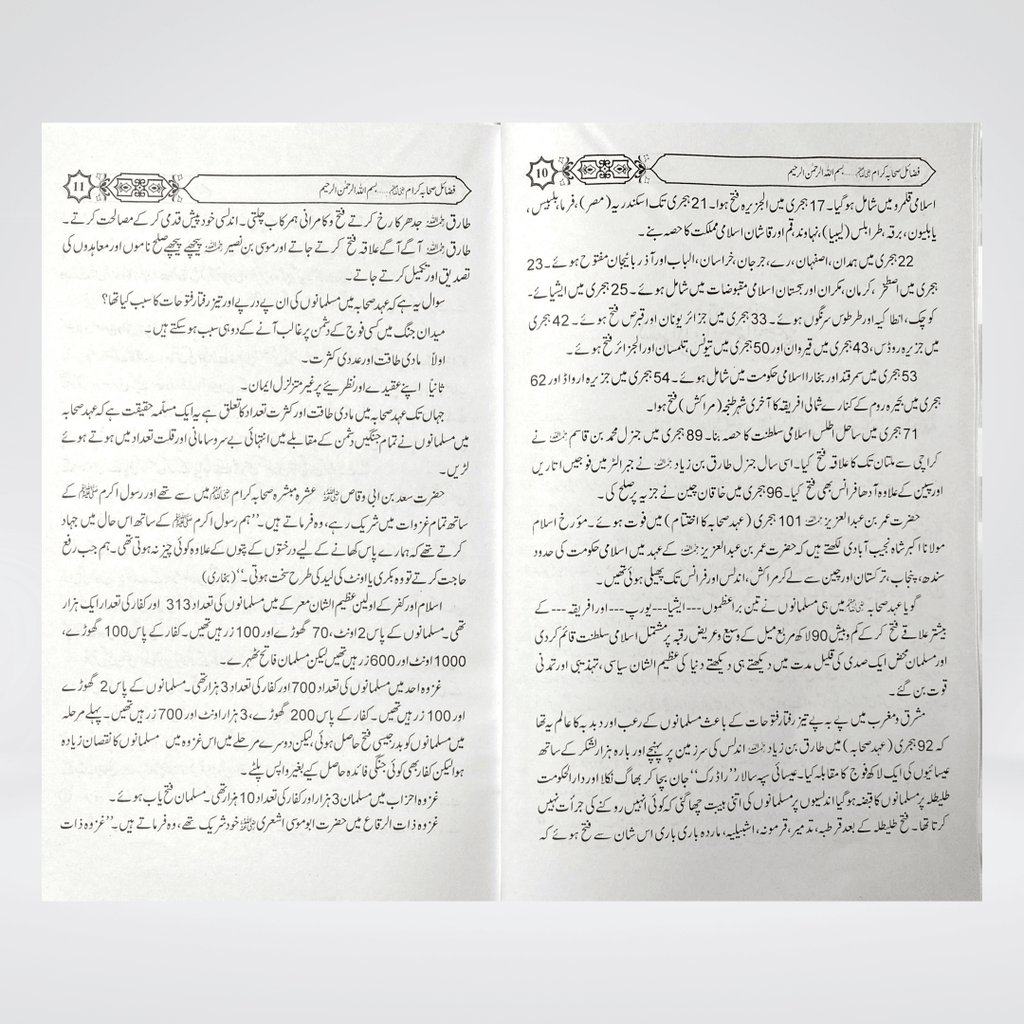 10
فضائل صحابہ کرام ﷢ ..... بسم اللہ الرحمٰن الرحیم
اسلامی قلمرو میں شامل ہوگیا۔ 17 ہجری میں الجزیرہ فتح ہوا۔ 21 ہجری تک اسکندریہ (مصر)، فرما، بلبیس،
بابلیون، برقہ، طرابلس (لیبیا)، نہاوند، قم اور قاشان اسلامی مملکت کا حصہ بنے۔
22 ہجری میں ہمدان، اصفہان، رے، جرجان، خراسان، الباب اور آذربائیجان مفتوح ہوئے۔ 23
ہجری میں اصطخر، کرمان، مکران اور سجستان اسلامی مقبوضات میں شامل ہوئے۔ 25 ہجری میں ایشیائے۔
کوچک، انطاکیہ اور طرطوس سرنگوں ہوئے۔ 33 ہجری میں جزائر یونان اور قبرص فتح ہوئے۔ 42 ہجری
میں جزیرہ روڈس، 43 ہجری میں قیروان اور 50 ہجری میں تیونس، تلمسان اور الجزائر فتح ہوئے۔
53 ہجری میں سمرقند اور بخارا اسلامی حکومت میں شامل ہوئے۔ 54 ہجری میں جزیرہ ارواڈ اور 62
ہجری میں بحیرہ روم کے کنارے شمالی افریقہ کا آخری شہر طنجہ (مراکش) فتح ہوا۔
71 ہجری میں ساحل اطلس اسلامی سلطنت کا حصہ بنا۔ 89 ہجری میں جنرل محمد بن قاسم ﷫ نے
کراچی سے ملتان تک کا علاقہ فتح کیا۔ اسی سال جنرل طارق بن زیاد ﷫ نے جبرالٹر میں فوجیں اتاریں
اور سپین کے علاوہ آدھا فرانس بھی فتح کیا۔ 96 ہجری میں خاقان چین نے جزیہ پر صلح کی۔
حضرت عمر بن عبدالعزیز ﷫ 101 ہجری (عہد صحابہ کا اختتام) میں فوت ہوئے۔ مؤرخ اسلام
مولانا اکبر شاہ نجیب آبادی لکھتے ہیں کہ حضرت عمر بن عبدالعزیز ﷫ کے عہد میں اسلامی حکومت کی حدود
سندھ، پنجاب، ترکستان اور چین سے لے کر مراکش، اندلس اور فرانس تک پھیلی ہوئی تھیں۔
گویا عہد صحابہ ﷢ میں ہی مسلمانوں نے تین براعظموں --- ایشیا --- یورپ --- اور افریقہ --- کے
بیشتر علاقے فتح کر کے کم و بیش 90 لاکھ مربع میل کے وسیع و عریض رقبہ پر مشتمل اسلامی سلطنت قائم کر دی
اور مسلمان محض ایک صدی کی قلیل مدت میں دیکھتے ہی دیکھتے دنیا کی عظیم الشان سیاسی، تہذیبی اور تمدنی
قوت بن گئے۔
مشرق و مغرب میں پے بہ پے تیز رفتار فتوحات کے باعث مسلمانوں کے رعب اور دبدبہ کا عالم یہ تھا
کہ 92 ہجری (عہد صحابہ) میں طارق بن زیاد ﷫ اندلس کی سرزمین پر پہنچے اور بارہ ہزار لشکر کے ساتھ
عیسائیوں کی ایک لاکھ فوج کا مقابلہ کیا۔ عیسائی سپہ سالار ”راڈرک“ جان بچا کر بھاگ نکلا اور دار الحکومت
طلیطلہ پر مسلمانوں کا قبضہ ہوگیا اندلسیوں پر مسلمانوں کی اتنی ہیبت چھا گئی کہ کوئی انہیں روکنے کی جرأت نہیں
کرتا تھا۔ فتح طلیطلہ کے بعد قرطبہ، تدمیر، قرمونہ، اشبیلیہ، ماردہ باری باری اس شان سے فتح ہوئے کہ
11
فضائل صحابہ کرام ﷢ ..... بسم اللہ الرحمٰن الرحیم
طارق ﷫ جدھر کا رخ کرتے فتح و کامرانی ہمرکاب چلتی۔ اندلسی خود پیش قدمی کر کے مصالحت کرتے۔
طارق ﷫ آگے آگے علاقہ فتح کرتے جاتے اور موسی بن نصیر ﷫ پیچھے پیچھے صلح ناموں اور معاہدوں کی
تصدیق اور تکمیل کرتے جاتے۔
سوال یہ ہے کہ عہد صحابہ میں مسلمانوں کی ان پے در پے اور تیز رفتار فتوحات کا سبب کیا تھا؟
میدان جنگ میں کسی فوج کے دشمن پر غالب آنے کے دو ہی سبب ہو سکتے ہیں۔
اولاً مادی طاقت اور عددی کثرت۔
ثانیاً اپنے عقیدے اور نظریئے پر غیر متزلزل ایمان۔
جہاں تک عہد صحابہ میں مادی طاقت اور کثرت تعداد کا تعلق ہے یہ ایک مسلّمہ حقیقت ہے کہ عہد صحابہ
میں مسلمانوں نے تمام جنگیں دشمن کے مقابلے میں انتہائی بے سروسامانی اور قلت تعداد میں ہوتے ہوئے
لڑیں۔
حضرت سعد بن ابی وقاص ﷜ عشرہ مبشرہ صحابہ کرام ﷢ میں سے تھے اور رسول اکرم ﷺ کے
ساتھ تمام غزوات میں شریک رہے، وہ فرماتے ہیں۔ ”ہم رسول اکرم ﷺ کے ساتھ اس حال میں جہاد
کرتے تھے کہ ہمارے پاس کھانے کے لیے درختوں کے پتوں کے علاوہ کوئی چیز نہ ہوتی تھی۔ ہم جب رفع
حاجت کرتے تو وہ بکری یا اونٹ کی لید کی طرح سخت ہوتی۔“ (بخاری)
اسلام اور کفر کے اولین عظیم الشان معرکے میں مسلمانوں کی تعداد 313 اور کفار کی تعداد ایک ہزار
تھی۔ مسلمانوں کے پاس 2 اونٹ، 70 گھوڑے اور 100 زرہیں تھیں۔ کفار کے پاس 100 گھوڑے،
1000 اونٹ اور 600 زرہیں تھیں لیکن مسلمان فاتح ٹھہرے۔
غزوہ احد میں مسلمانوں کی تعداد 700 اور کفار کی تعداد 3 ہزار تھی۔ مسلمانوں کے پاس 2 گھوڑے
اور 100 زرہیں تھیں۔ کفار کے پاس 200 گھوڑے، 3 ہزار اونٹ اور 700 زرہیں تھیں۔ پہلے مرحلہ
میں مسلمانوں کو بدر جیسی فتح حاصل ہوئی لیکن دوسرے مرحلے میں اس غزوہ میں مسلمانوں کا نقصان زیادہ
ہوا لیکن کفار بھی کوئی جنگی فائدہ حاصل کیے بغیر واپس پلٹے۔
غزوہ احزاب میں مسلمان 3 ہزار اور کفار کی تعداد 10 ہزار تھی۔ مسلمان فتح یاب ہوئے۔
غزوہ ذات الرقاع میں حضرت ابو موسی اشعری ﷜ خود شریک تھے، وہ فرماتے ہیں۔ ”غزوہ ذات